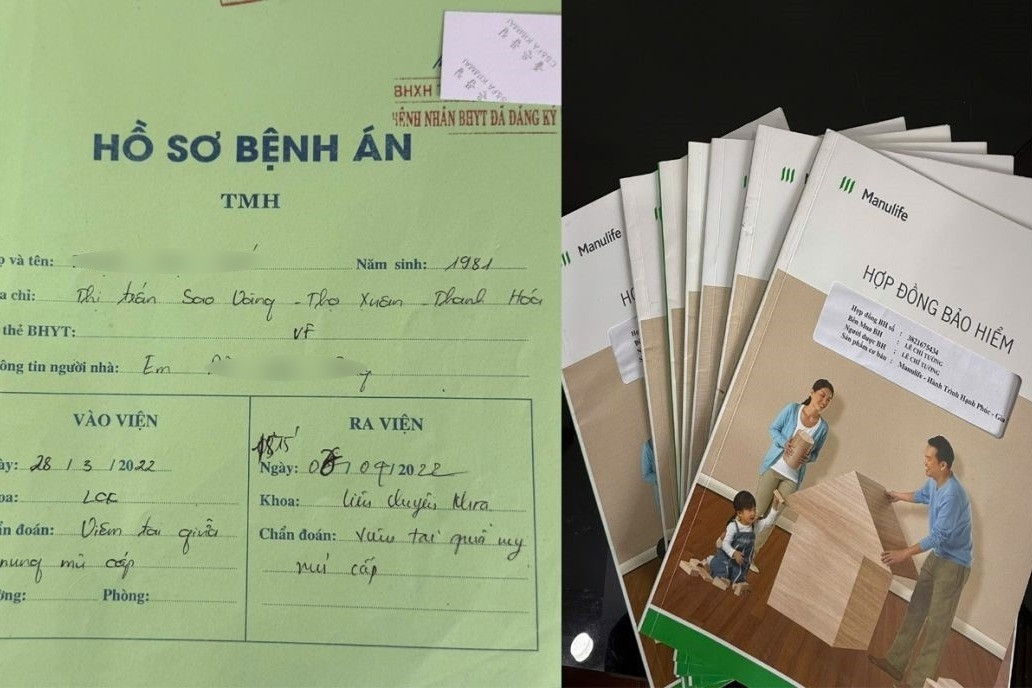 BHXH
BỆNH NHÂN BHYT ĐÃ ĐĂNG KÝ
HỒ SƠ BỆNH ÁN
TMH
ọ và tên:
Năm sinh: 1981
a chỉ: Thị trấn Sao Vàng - Thọ Xuân - Thanh Hóa
thẻ BHYT:
ông tin người nhà: Em
VÀO VIỆN
ày: 28 / 3 / 2022
oa: LCK
n đoán: Viêm tai giữa
nung mủ cấp
ờng: Phòng:
RA VIỆN
Ngày: 09/2022
Khoa: Liên chuyên khoa
Chẩn đoán: Viêm tai giữa
mủ cấp
Manulife
Manulife
HỢP ĐỒNG BẢO HIỂM
Hợp đồng BH số : 3821675434
Bên Mua BH : LÊ CHÍ TƯỜNG
Người được BH : LÊ CHÍ TƯỜNG
Sản phẩm cơ bản : Manulife - Hành Trình Hạnh Phúc - Gia